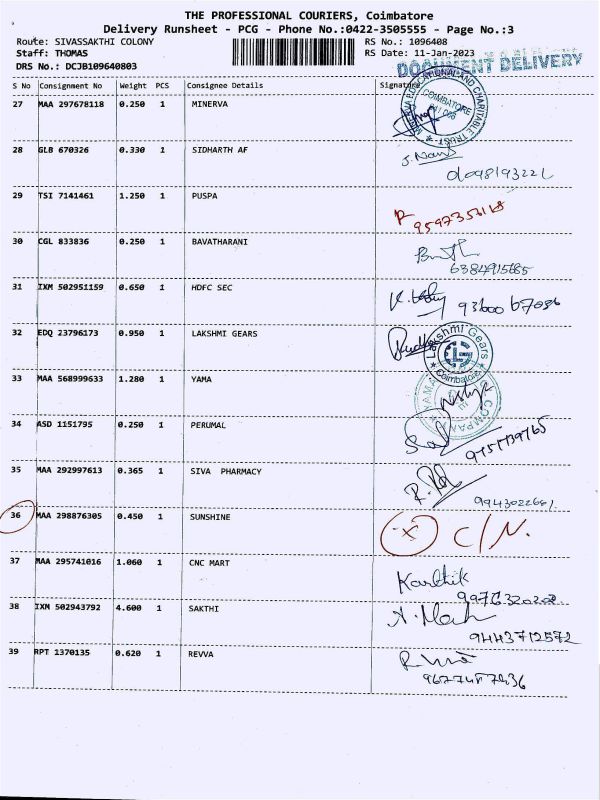 THE PROFESSIONAL COURIERS, Coimbatore
Delivery Runsheet - PCG - Phone No.:0422-3505555 - Page No.:3
Route: SIVASSAKTHI COLONY RS No.: 1096408
Staff: THOMAS RS Date: 11-Jan-2023
DRS No.: DCJB109640803 DOCUMENT DELIVERY
S No Consignment No Weight PCS Consignee Details Signature
27 MAA 297678118 0.250 1 MINERVA
COIMBATORE
28 GLB 670326 0.330 1 SIDHARTH AF
29 TSI 7141461 1.250 1 PUSPA
30 CGL 833836 0.250 1 BAVATHARANI
31 IXM 502951159 0.650 1 HDFC SEC
32 EDQ 23796173 0.950 1 LAKSHMI GEARS
Lakshmi Gears
Coimbatore
33 MAA 568999633 1.280 1 YAMA
34 ASD 1151795 0.250 1 PERUMAL
35 MAA 292997613 0.365 1 SIVA PHARMACY
36 MAA 298876305 0.450 1 SUNSHINE X C/N.
37 MAA 295741016 1.060 1 CNC MART Karthik
38 IXM 502943792 4.600 1 SAKTHI
9443712572
39 RPT 1370135 0.620 1 REVVA